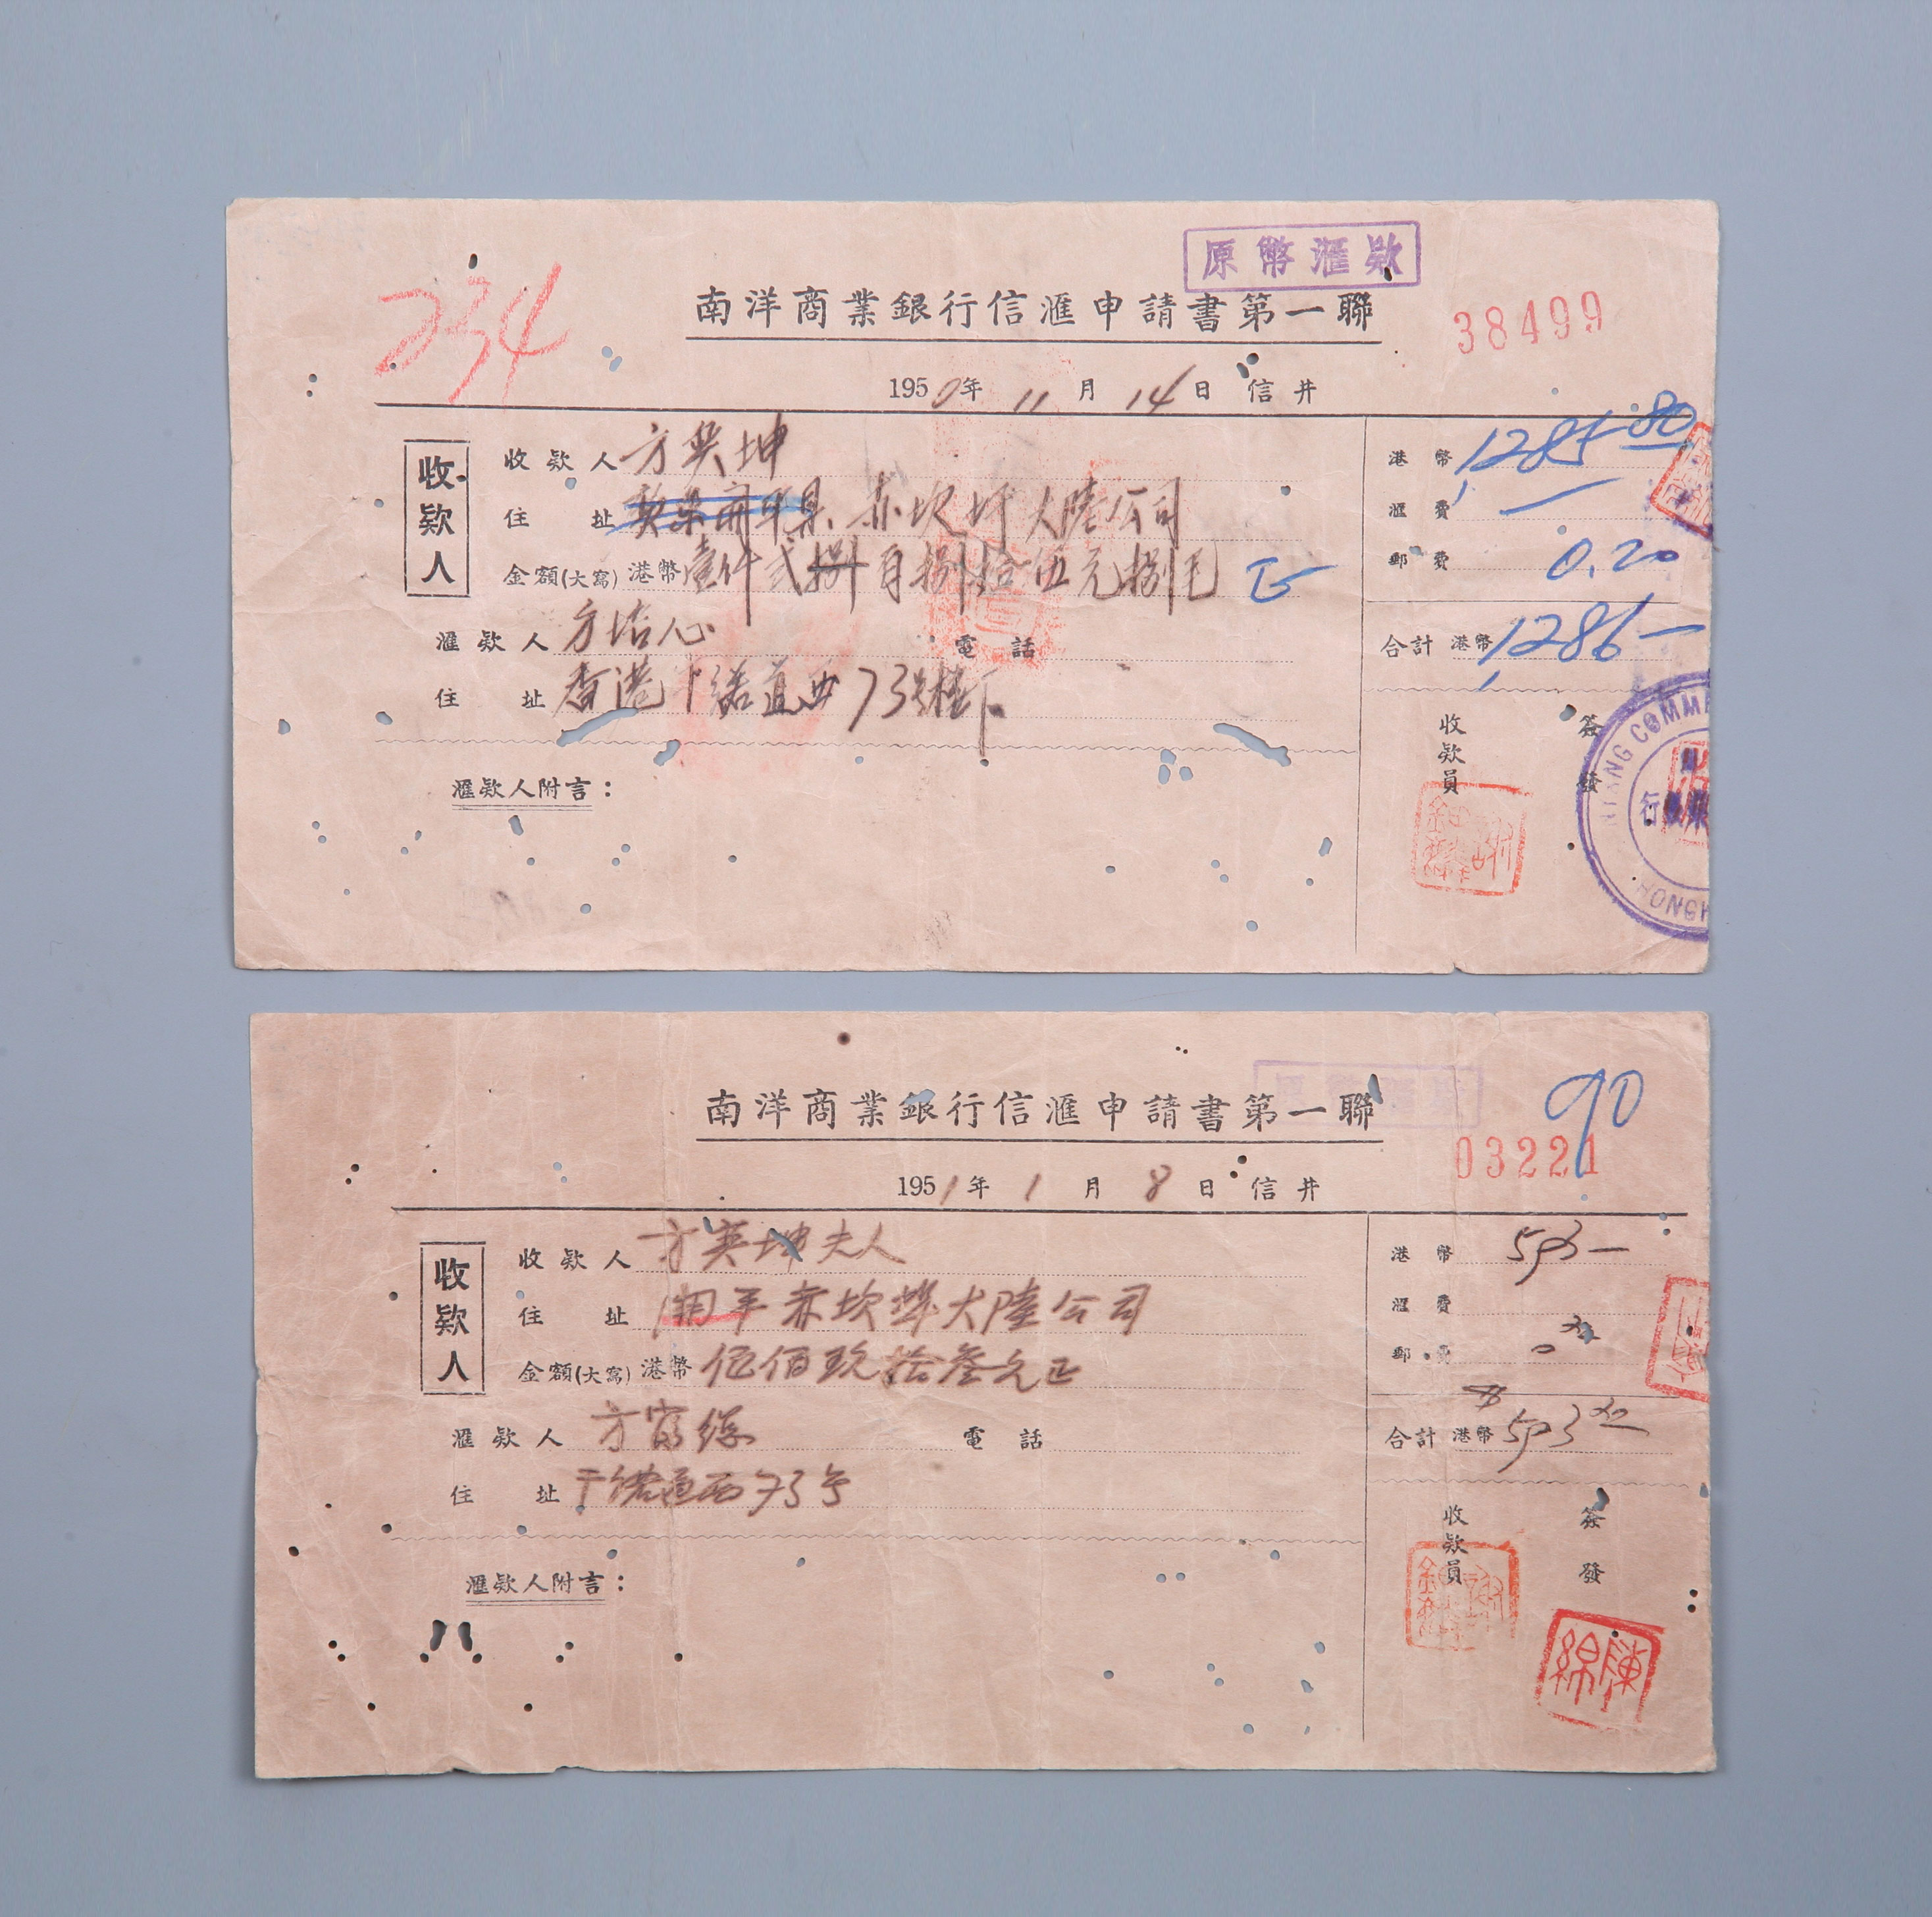 原幣滙欵
234
南洋商業銀行信滙申請書第一聯
38499
1950年11月14日 信井
收欵人
收欵人 方英坤
住址 開平县赤坎圩大陸公司
金額(大寫)港幣 壹仟弍捌百捌拾伍元捌毛正
滙欵人 方 電話
住址 香港干諾道西73號樓下
滙欵人附言：
港幣 1285.80
滙費 —
郵費 0.20
合計 港幣 1286—
收欵員
簽發
南洋商業銀行信滙申請書第一聯
90
03221
1951年1月8日 信井
收欵人
收欵人 方英坤夫人
住址 開平赤坎埠大陸公司
金額(大寫)港幣 伍佰玖拾叁元正
滙欵人 方 電話
住址 干諾道西73号
滙欵人附言：
港幣 593—
滙費
郵費 0.20
合計 港幣 593.20
收欵員
簽發
陳綿